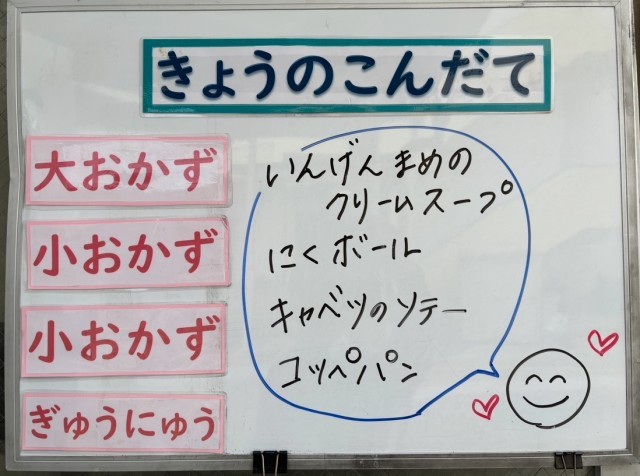 きょうのこんだて
大おかず
いんげんまめの
クリームスープ
小おかず
にくボール
小おかず
キャベツのソテー
ぎゅうにゅう
コッペパン